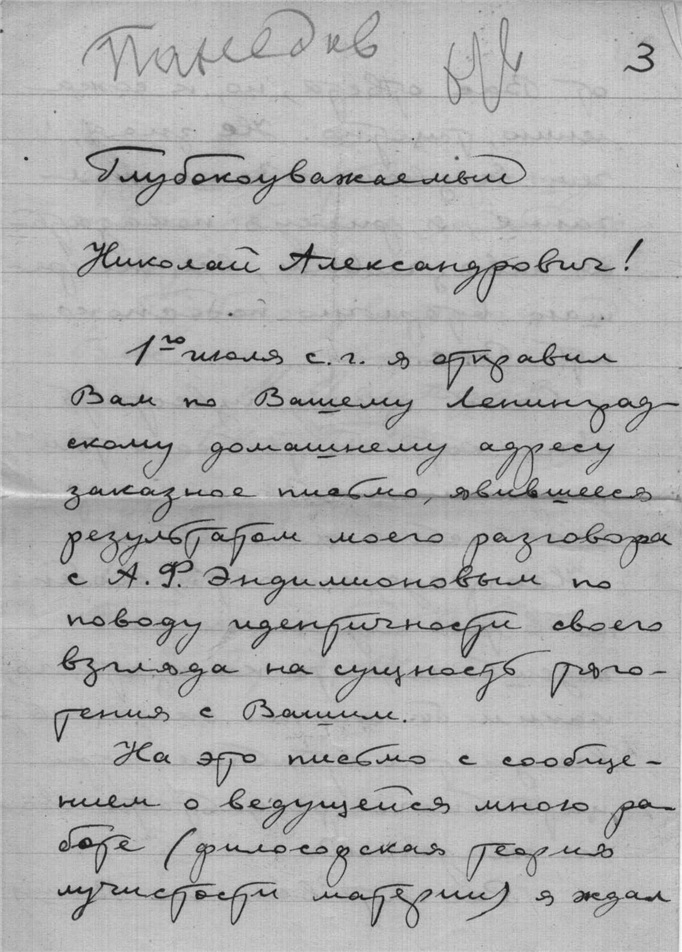 3
Глубокоуважаемый
Николай Александрович!
1го июля с. г. я отправил
Вам по Вашему Ленинград-
скому домашнему адресу
заказное письмо, явившееся
результатом моего разговора
с А. Ф. Эндимионовым по
поводу идентичности своего
взгляда на сущность тяго-
тения с Вашим.
На это письмо с сообще-
нием о ведущейся мною ра-
боте (философская теория
лучистости материи) я ждал